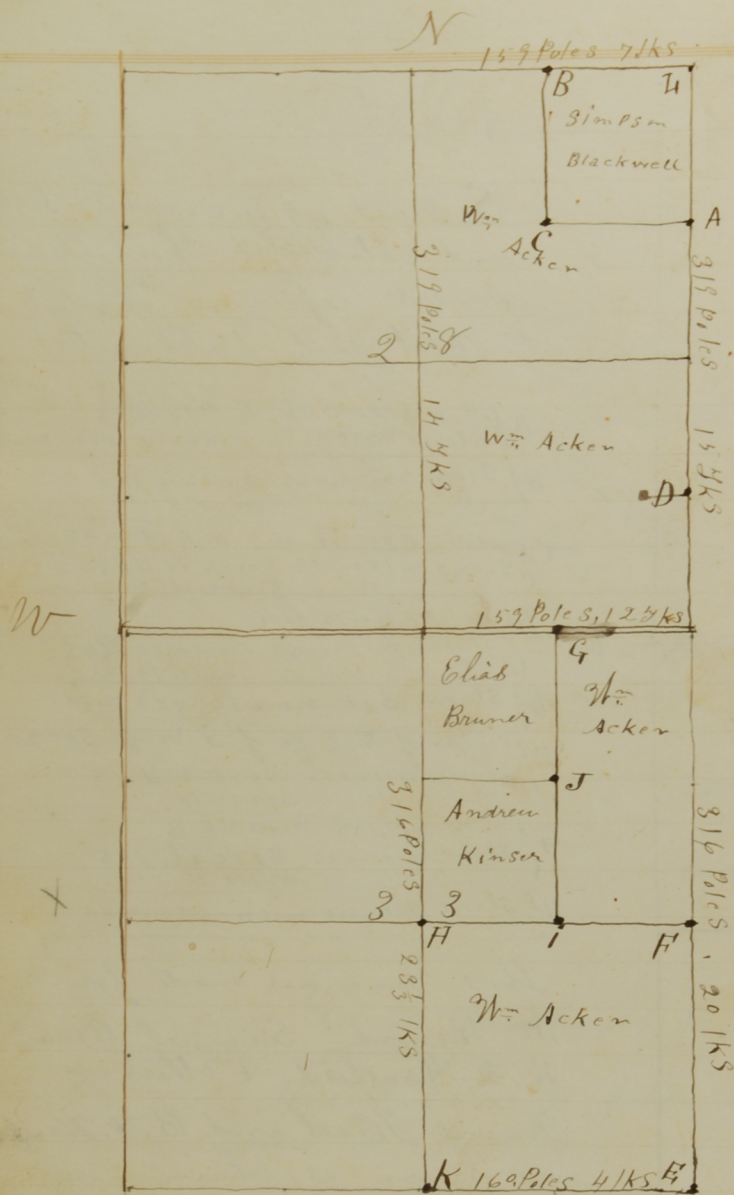 N
159 Poles 7 lks
B
L
Simpson
Blackwell
Wm
C
A
Acker
319 Poles 14 lks
319 Poles 15 lks
28
Wm Acker
D
W
159 Poles, 12 lks
G
Elias
Bruner
Wm
Acker
J
Andrew
Kinser
316 Poles 23½ lks
316 Poles, 20 lks
33
H
I
F
X
Wm Acker
K
160 Poles 4 lks
E